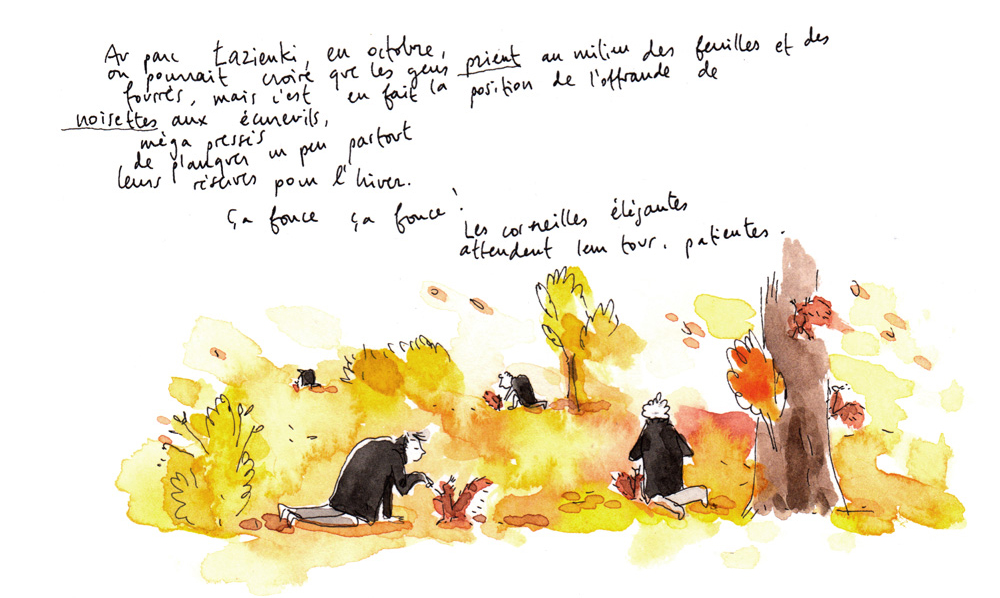 Au parc Łazienki, en octobre,
on pourrait croire que les gens prient au milieu des feuilles et des
fourrés, mais c'est en fait la position de l'offrande de
noisettes aux écureuils,
méga pressés
de planquer un peu partout
leurs réserves pour l'hiver.
ça fonce ça fonce !
Les corneilles élégantes
attendent leur tour, patientes.